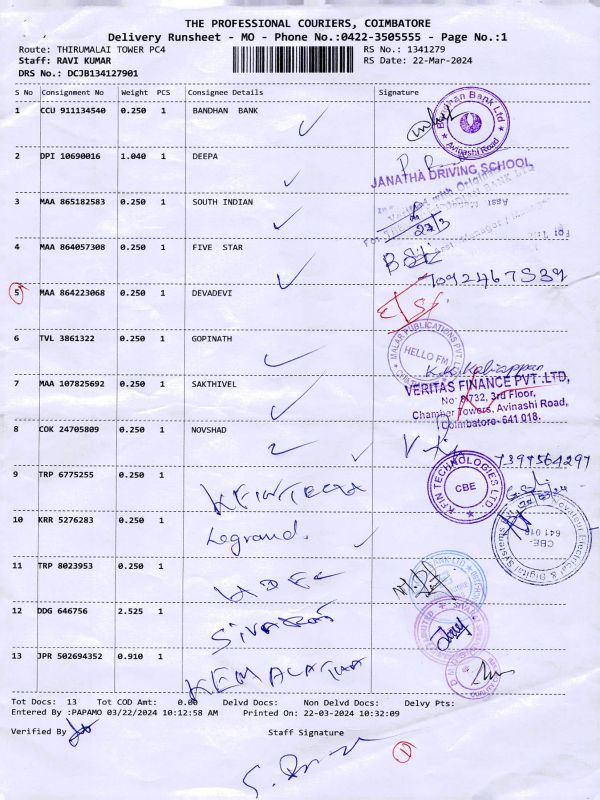 THE PROFESSIONAL COURIERS, COIMBATORE
Delivery Runsheet - MO - Phone No.:0422-3505555 - Page No.:1
Route: THIRUMALAI TOWER PC4 RS No.: 1341279
Staff: RAVI KUMAR RS Date: 22-Mar-2024
DRS No.: DCJB134127901
S No Consignment No Weight PCS Consignee Details Signature
1 CCU 911134540 0.250 1 BANDHAN BANK
Bandhan Bank Ltd
Avinashi Road
2 DPI 10690016 1.040 1 DEEPA
JANATHA DRIVING SCHOOL
3 MAA 865182583 0.250 1 SOUTH INDIAN
27/3
4 MAA 864057308 0.250 1 FIVE STAR
7092467539
5 MAA 864223068 0.250 1 DEVADEVI
6 TVL 3861322 0.250 1 GOPINATH
MALAR PUBLICATIONS PVT. LTD
HELLO FM
K.K. Kaliappan
7 MAA 107825692 0.250 1 SAKTHIVEL
VERITAS FINANCE PVT. LTD,
3rd Floor,
Chamber Towers, Avinashi Road,
Coimbatore- 641 018.
8 COK 24705809 0.250 1 NOVSHAD
7397564297
9 TRP 6775255 0.250 1 KFINTECH
KFIN TECHNOLOGIES LTD.
CBE
10 KRR 5276283 0.250 1 Legrand
CBE-
641 018
11 TRP 8023953 0.250 1 HDFC
12 DDG 646756 2.525 1
13 JPR 502694352 0.910 1
Tot Docs: 13 Tot COD Amt: 0.00 Delvd Docs: Non Delvd Docs: Delvy Pts:
Entered By :PAPAMO 03/22/2024 10:12:58 AM Printed On: 22-03-2024 10:32:09
Verified By Staff Signature